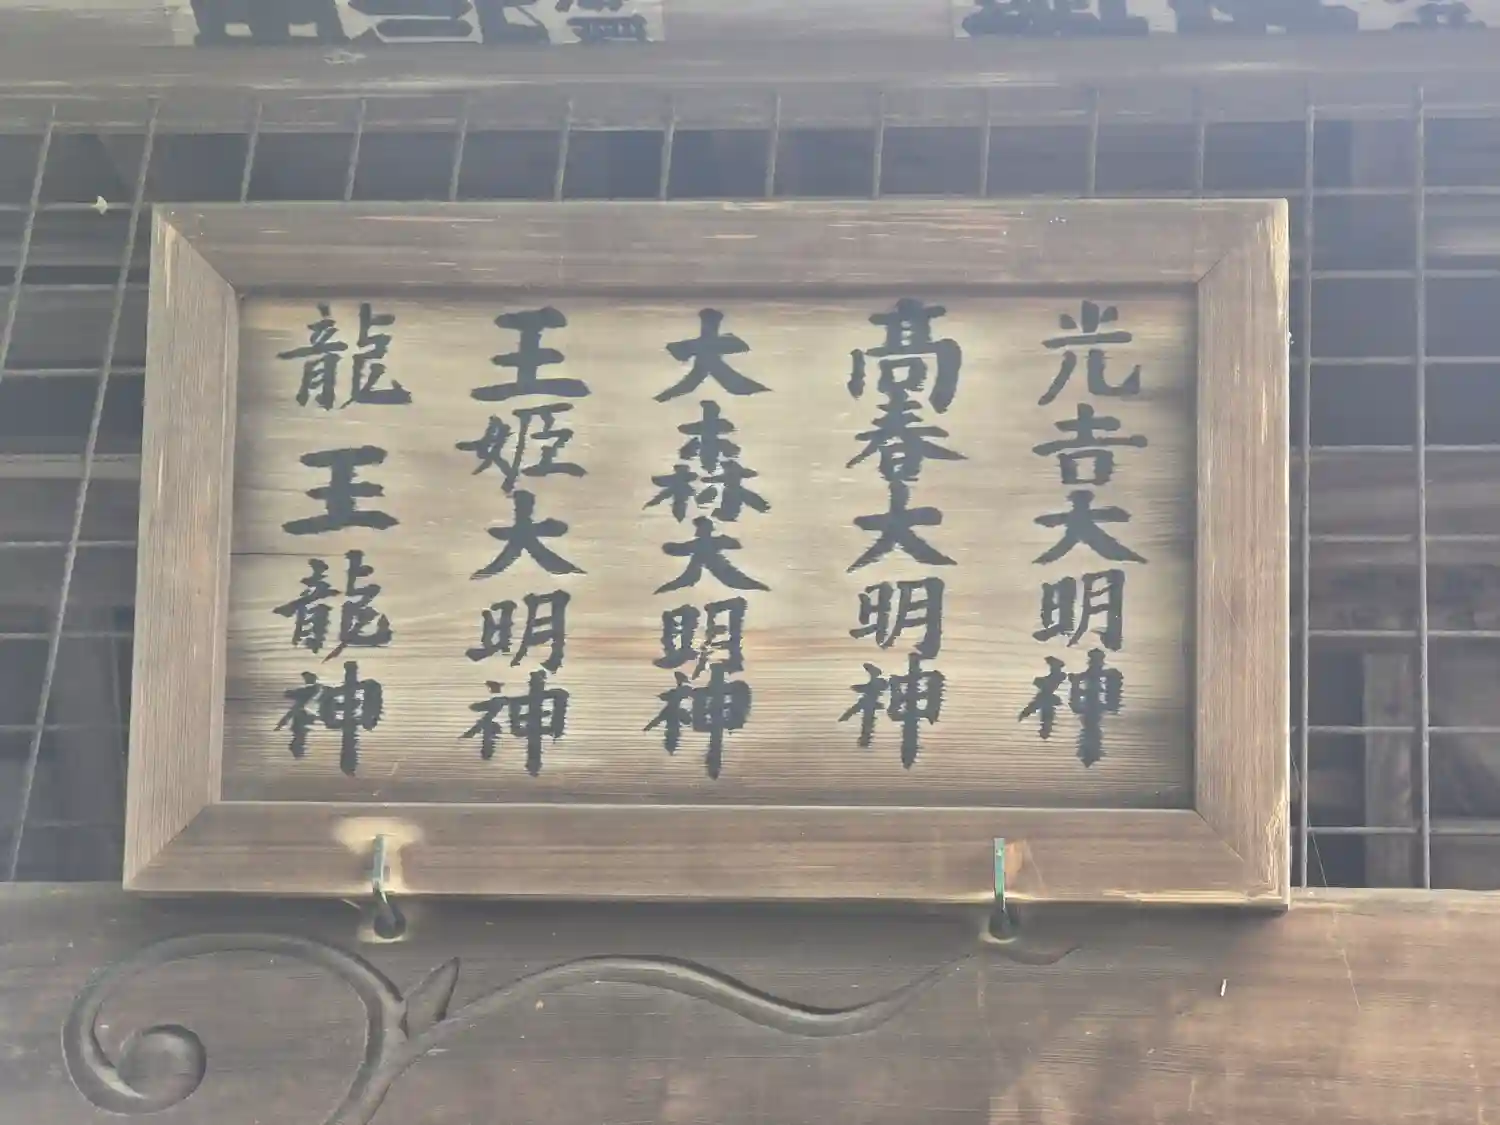 光𠮷大明神
髙春大明神
大森大明神
王姫大明神
龍王龍神